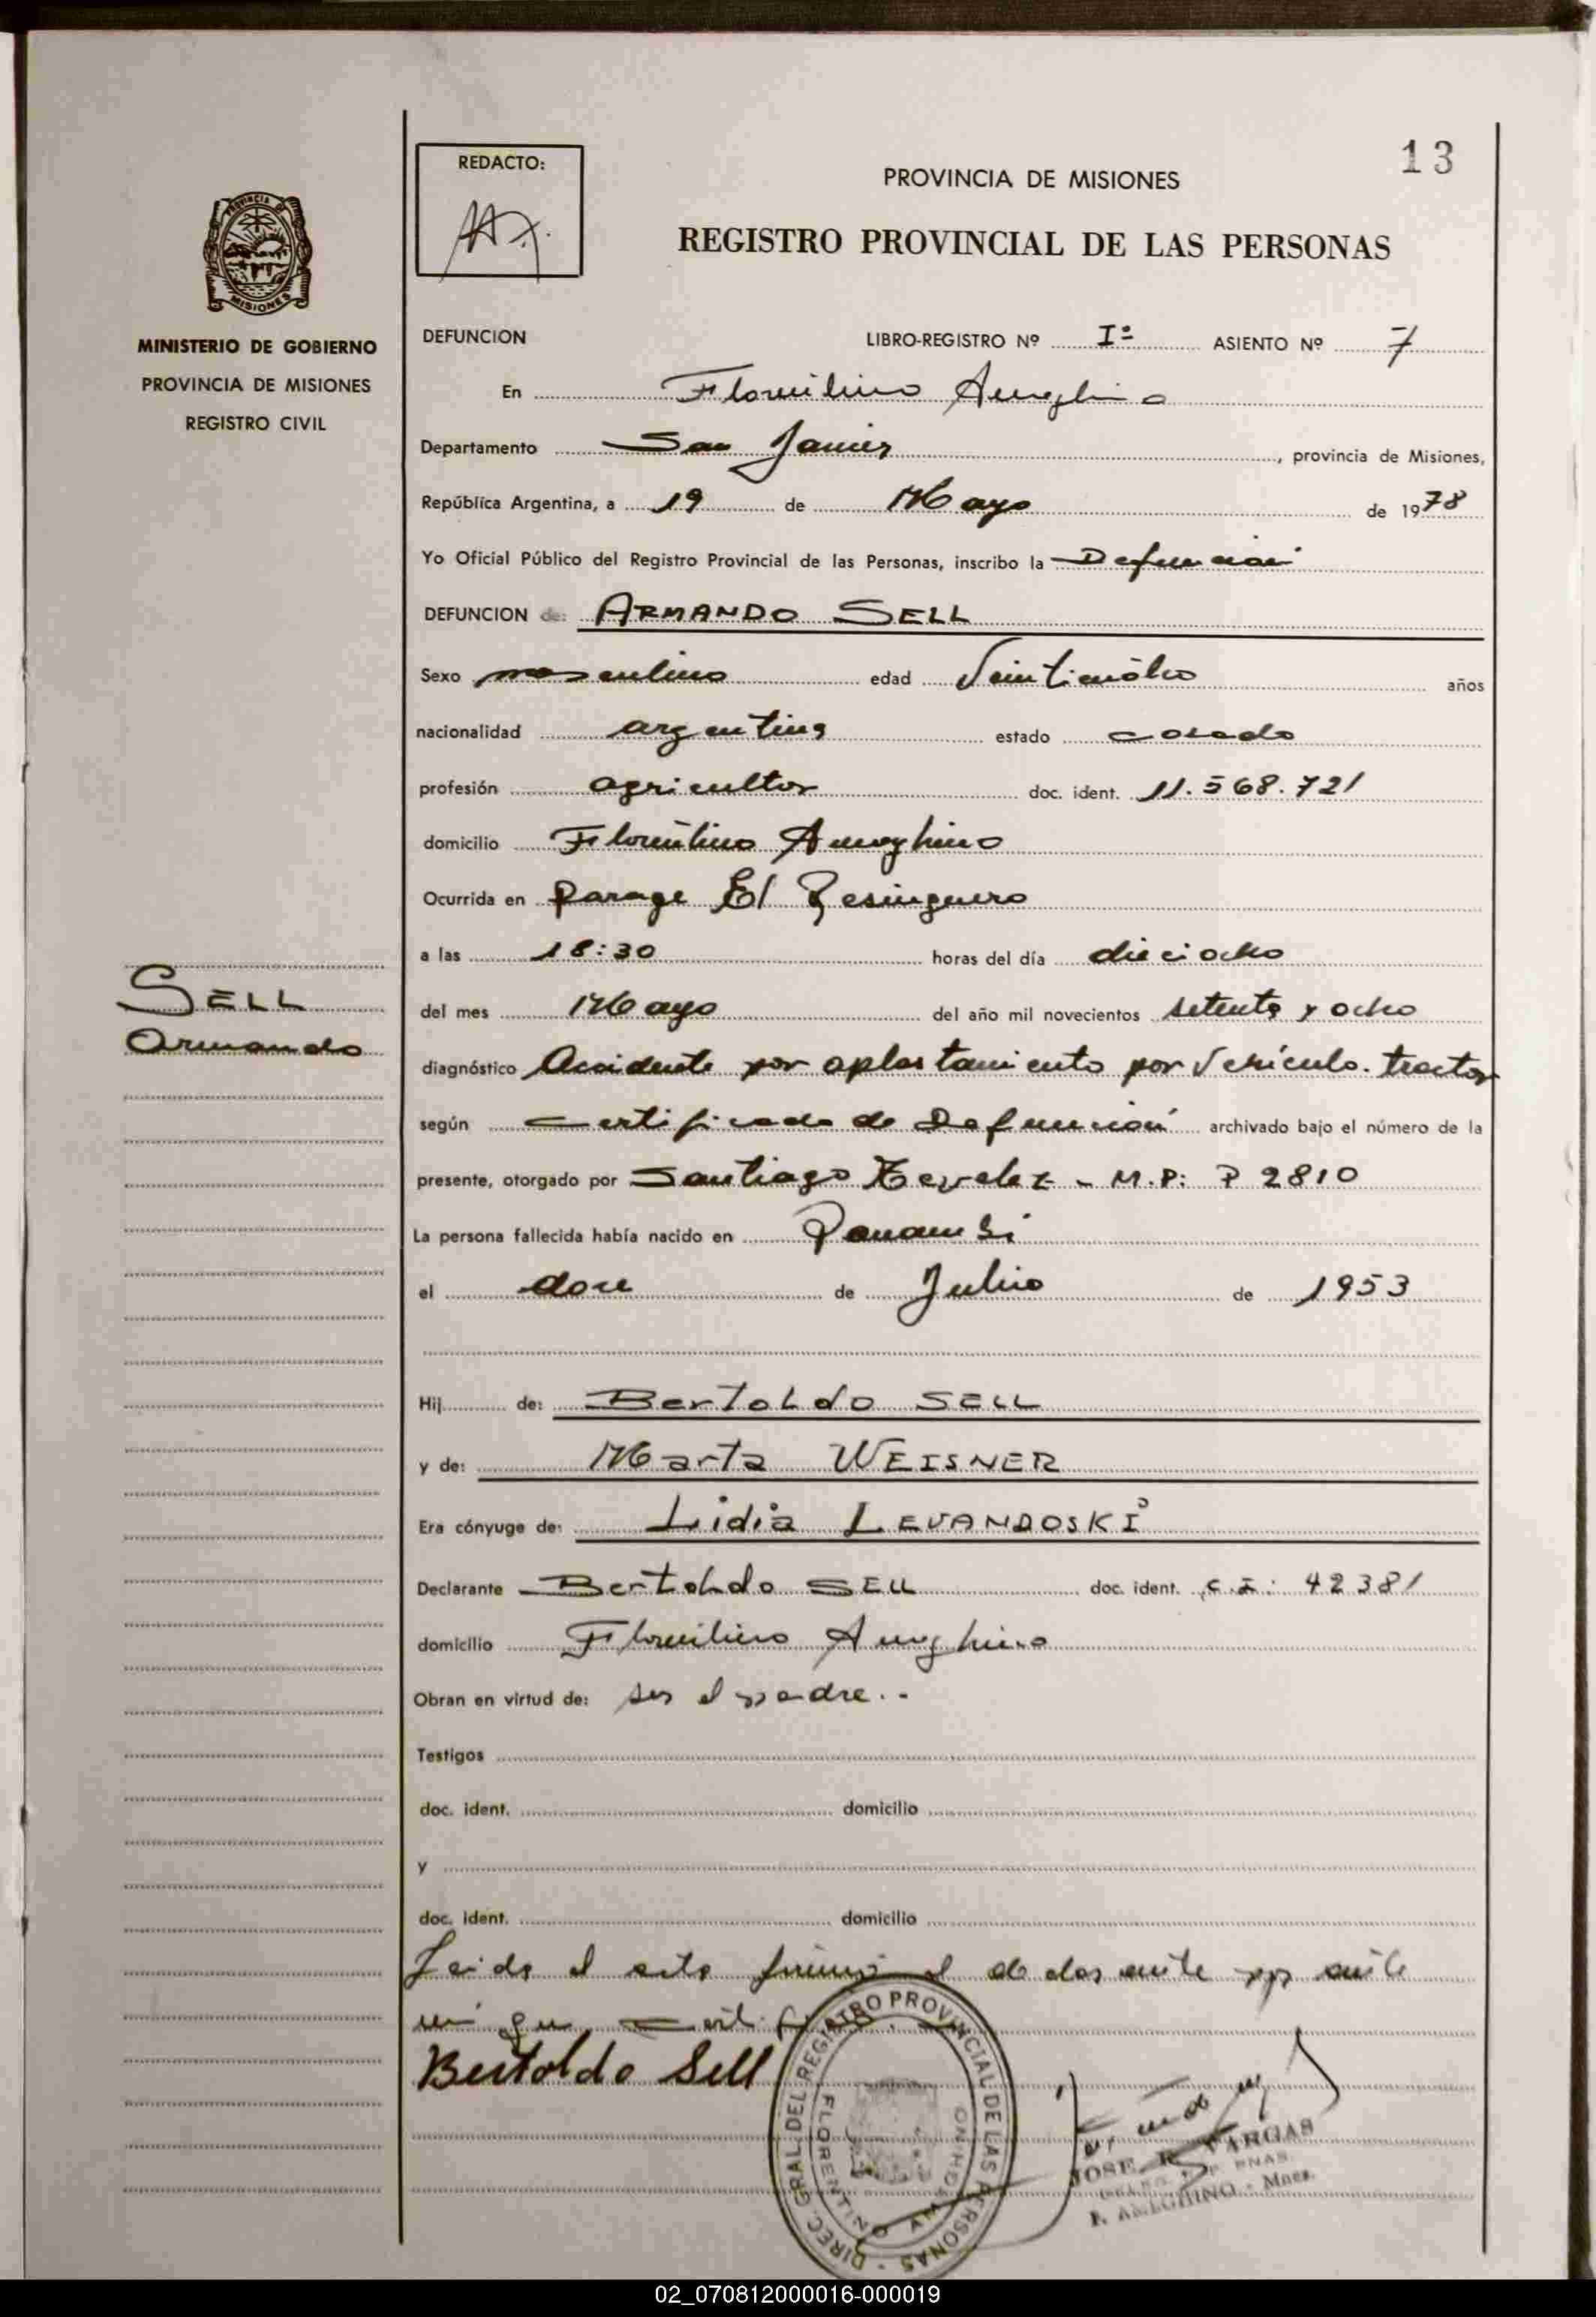 13
REDACTO:
PROVINCIA DE MISIONES
REGISTRO PROVINCIAL DE LAS PERSONAS
PROVINCIA DE
MISIONES
MINISTERIO DE GOBIERNO
PROVINCIA DE MISIONES
REGISTRO CIVIL
SELL
Armando
DEFUNCION LIBRO-REGISTRO Nº Iº ASIENTO Nº 7
En Florentino Ameghino
Departamento San Javier, provincia de Misiones,
República Argentina, a 19 de Mayo de 1978
Yo Oficial Público del Registro Provincial de las Personas, inscribo la Defunción
DEFUNCION de: ARMANDO SELL
Sexo masculino edad Veinticuatro años
nacionalidad argentina estado casado
profesión agricultor doc. ident. 11.568.721
domicilio Florentino Ameghino
Ocurrida en Parage El Resinguero
a las 18:30 horas del día dieciocho
del mes Mayo del año mil novecientos setenta y ocho
diagnóstico Accidente por aplastamiento por Vehículo. tractor
según Certificado de Defunción archivado bajo el número de la
presente, otorgado por Santiago - M.P: P 2810
La persona fallecida había nacido en Panambi
el doce de Julio de 1953
Hij de: Bertoldo SELL
y de: Marta WEISNER
Era cónyuge de: Lidia LEVANDOSKI
Declarante Bertoldo SELL doc. ident. C.I: 42381
domicilio Florentino Ameghino
Obran en virtud de: ser el padre.-
Testigos
doc. ident. domicilio
y
doc. ident. domicilio
Leida el acta firma el
Bertoldo Sell
DIREC. GRAL. DEL REGISTRO PROVINCIAL DE LAS PERSONAS -
FLORENTINO AMEGHINO
JOSE R. VARGAS
F. AMEGHINO - Mnes.
02_070812000016-000019